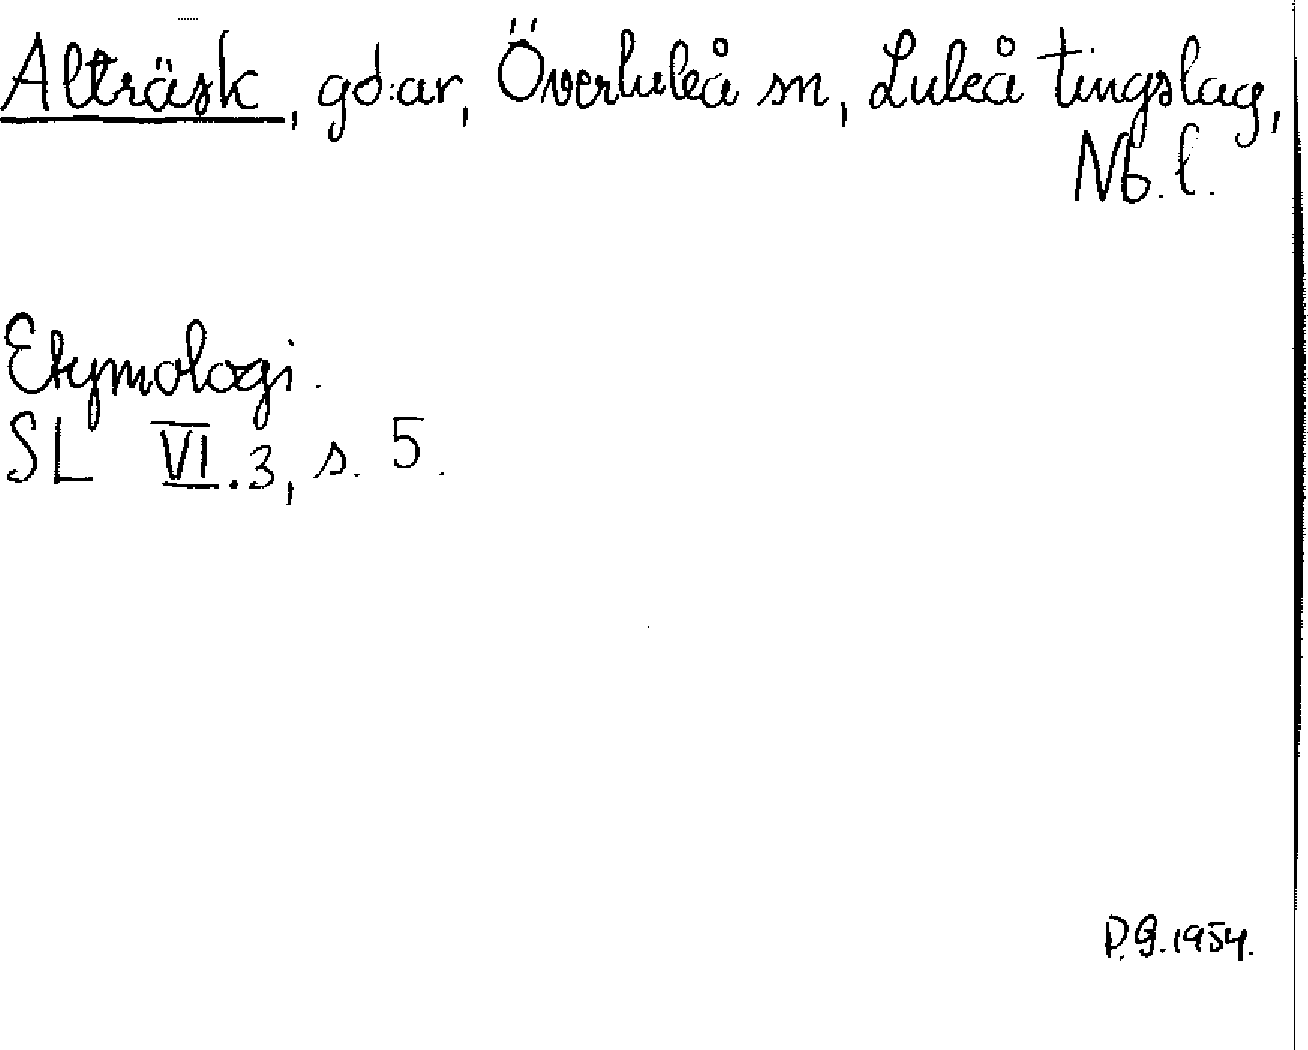 Alträsk, gd:ar, Överluleå sn, Luleå tingslag,
Nb. l.
Etymologi.
SL VI.3, s. 5.
P.G. 1954.